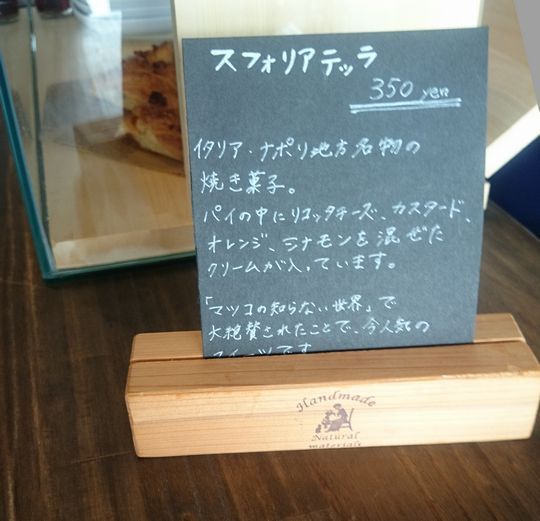 スフォリアテッラ
350 yen
イタリア・ナポリ地方名物の
焼き菓子。
パイの中にリコッタチーズ、カスタード、
オレンジ、シナモンを混ぜた
クリームが入っています。
「マツコの知らない世界」で
大絶賛されたことで、今人気の
スイーツです
Handmade
Natural
materials